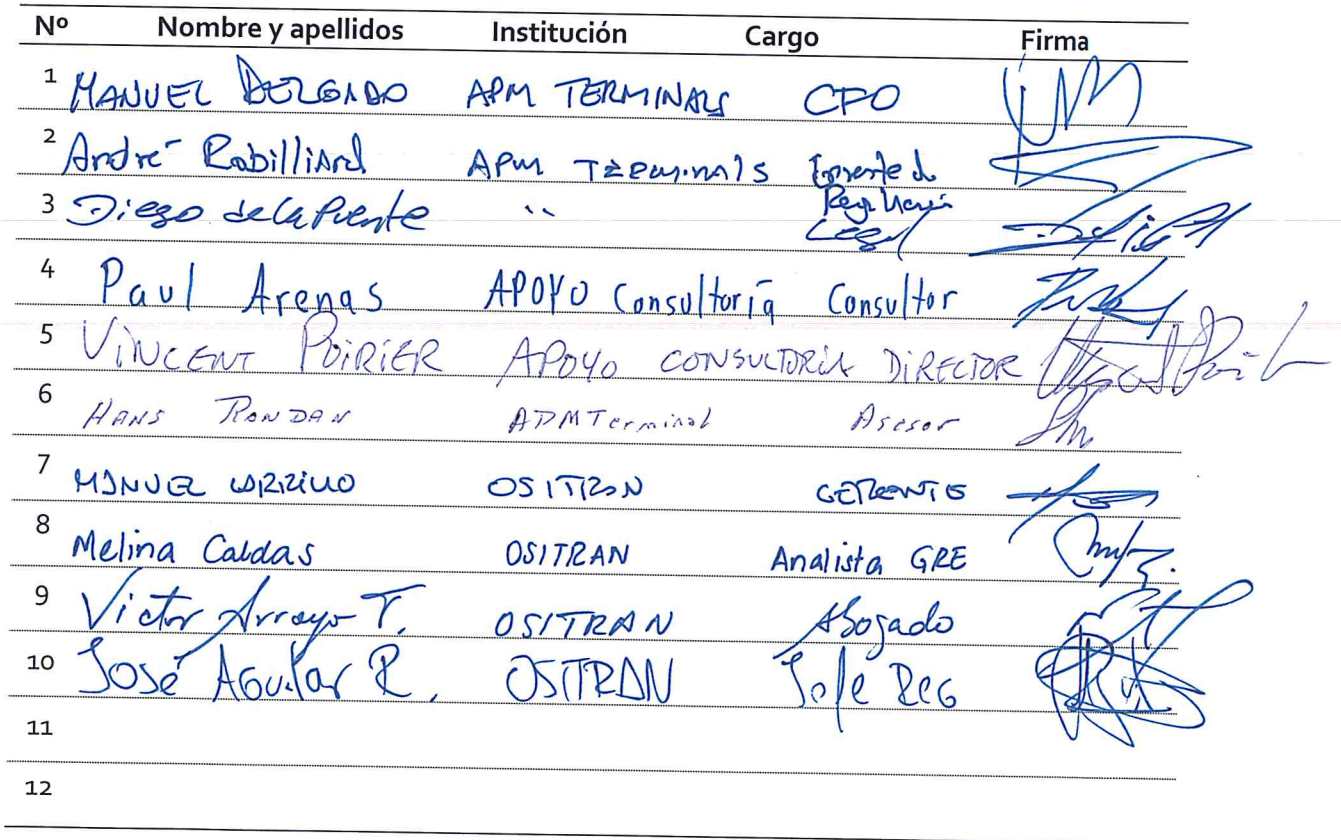 Nº Nombre y apellidos Institución Cargo Firma
1 MANUEL DELGADO APM TERMINALS CFO
2 André Rabilliard APM TERMINALS Gerente de
Regulación
3 Diego de la Puente " Legal
4 Paul Arenas APOYO Consultoría Consultor
5 VINCENT POIRIER APOYO CONSULTORIA DIRECTOR
6 HANS RONDAN APMTerminal Asesor
7 MANUEL CARRILLO OSITRAN GERENTE
8 Melina Caldas OSITRAN Analista GRE
9 Victor Arroyo T. OSITRAN Abogado
10 José Aguilar R. OSITRAN Jefe REG
11
12